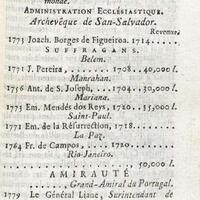 monde.
ADMINISTRATION ECCLÉSIASTIQUE.
Archevêque de San-Salvador.
Revenus.
1773 Joach. Borges de Figueiroa. 1714
SUFFRAGANS.
Belem.
1771 J. Pereira, 1708..40,000 l.
Manrahan.
1756 Ant. de S. Joseph, 1704..30,000 l.
Mariana.
1773 Em. Mendés dos Reys, 1720..35,000 l.
Saint-Paul.
1771 Em. de la Résurrection, 1718
La Paz.
1764 Fr. de Campos, 1720
Rio-Janeiro.
50,000 l.
AMIRAUTÉ
Grand-Amiral du Portugal.
1779 Le Général Liane, Surintendant de